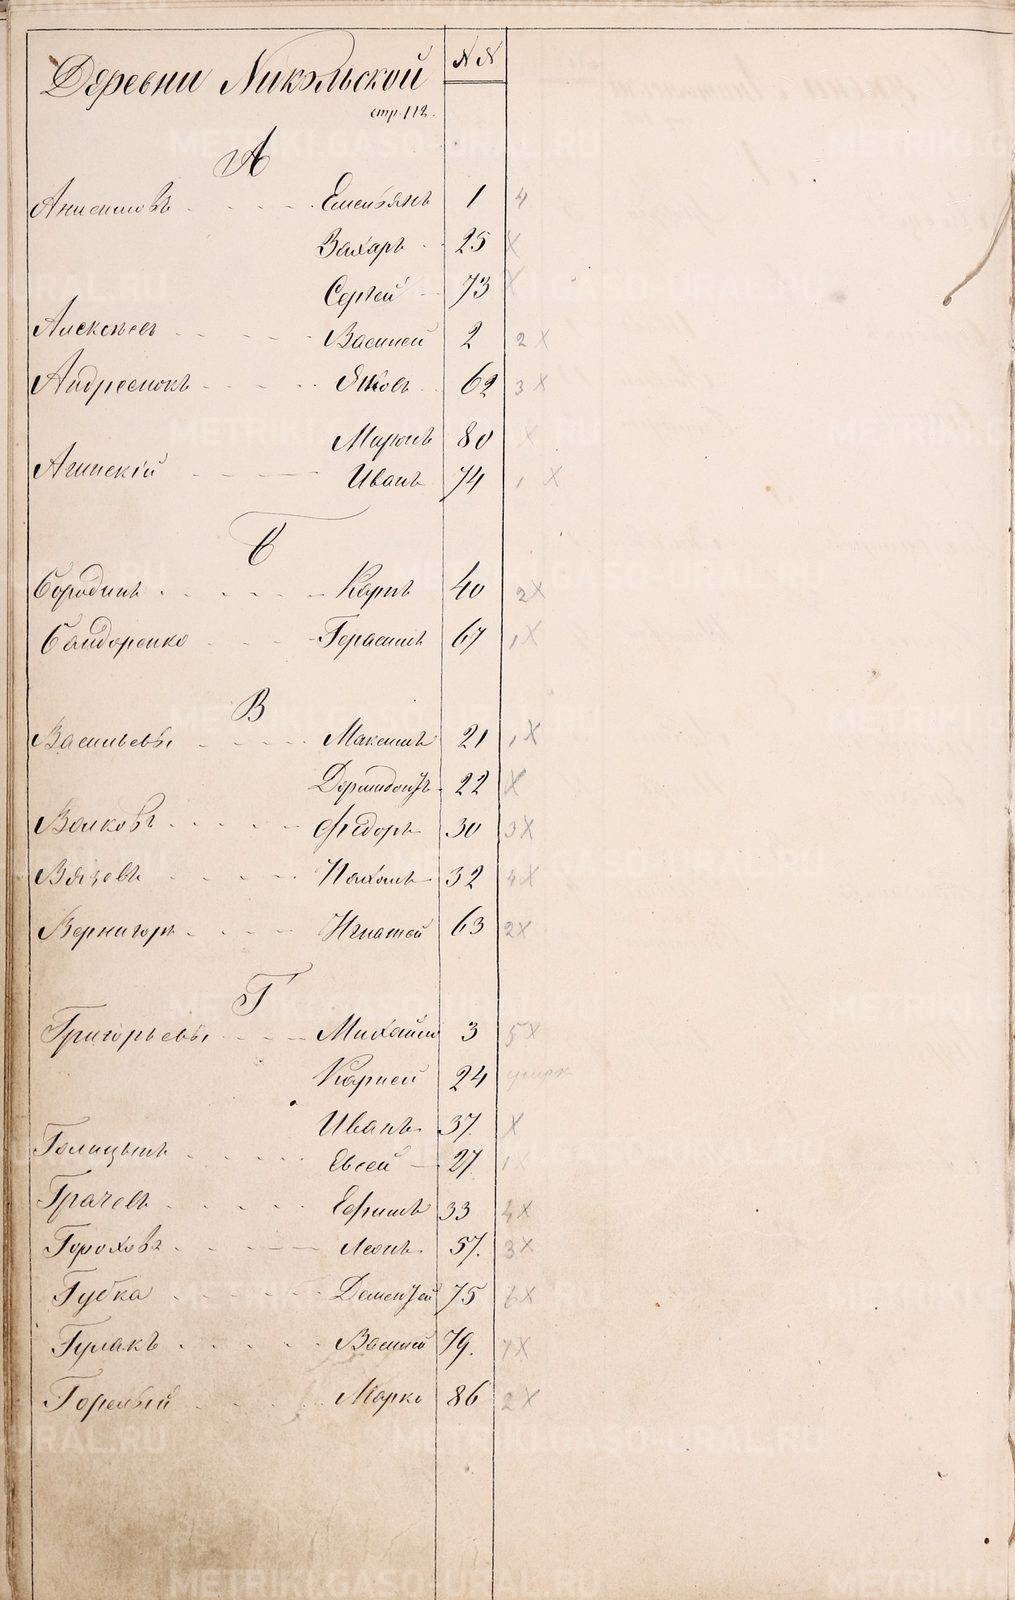 Деревни Никольской № №
стр. 112.
А
Анисимовъ Емельянъ 1 4
Захаръ 25 X
Сергѣй 73 X
Алексѣевъ Василей 2 2 X
Андреенокъ Яковъ 62 3 X
Миронъ 80 X
Агинскій Иванъ 74 1 X
Б
Бородинъ Карпъ 40 2 X
Бандоренко Герасимъ 67 1 X
В
Васильевы Максимъ 21 1 X
Дормидонтъ 22 X
Волковъ Ѳедоръ 30 3 X
Вязовъ Пахомъ 32 4 X
Вернигоръ Игнатей 63 2 X
Г
Григорьевы Михайло 3 5 X
Карней 24
Иванъ 37. X
Голицынъ Евсей 27 1 X
Грачевъ Ефимъ 33 4 X
Гороховъ Леонъ 57. 3 X
Губка Дементей 75 6 X
Гулакъ Василей 79. 7 X
Горемый Марко 86 2 X
METRIKI.GASO-URAL.RU